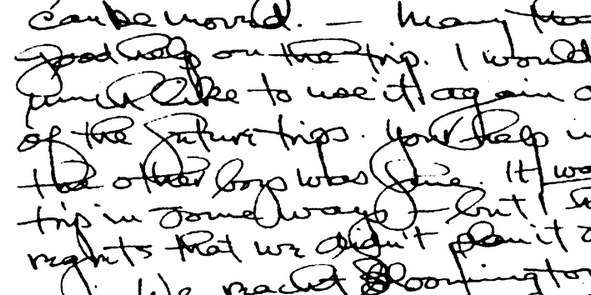 can be moved. — Many
good help on the trip. I would
much like to use it again
of the future trips. Your help
the other boys was fine. It
trip in some ways — but I
regrets that we didn't plan it
We reacht Bloomington